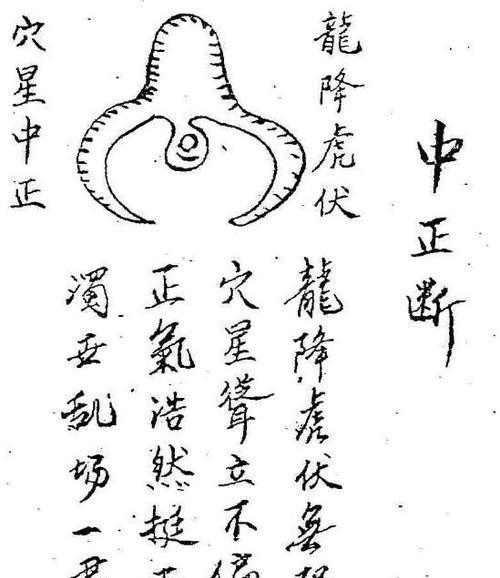 中正断
龍降虎伏
穴星中正
龍降虎伏無
穴星聳立不偏
正氣浩然挺
濁世乱场一